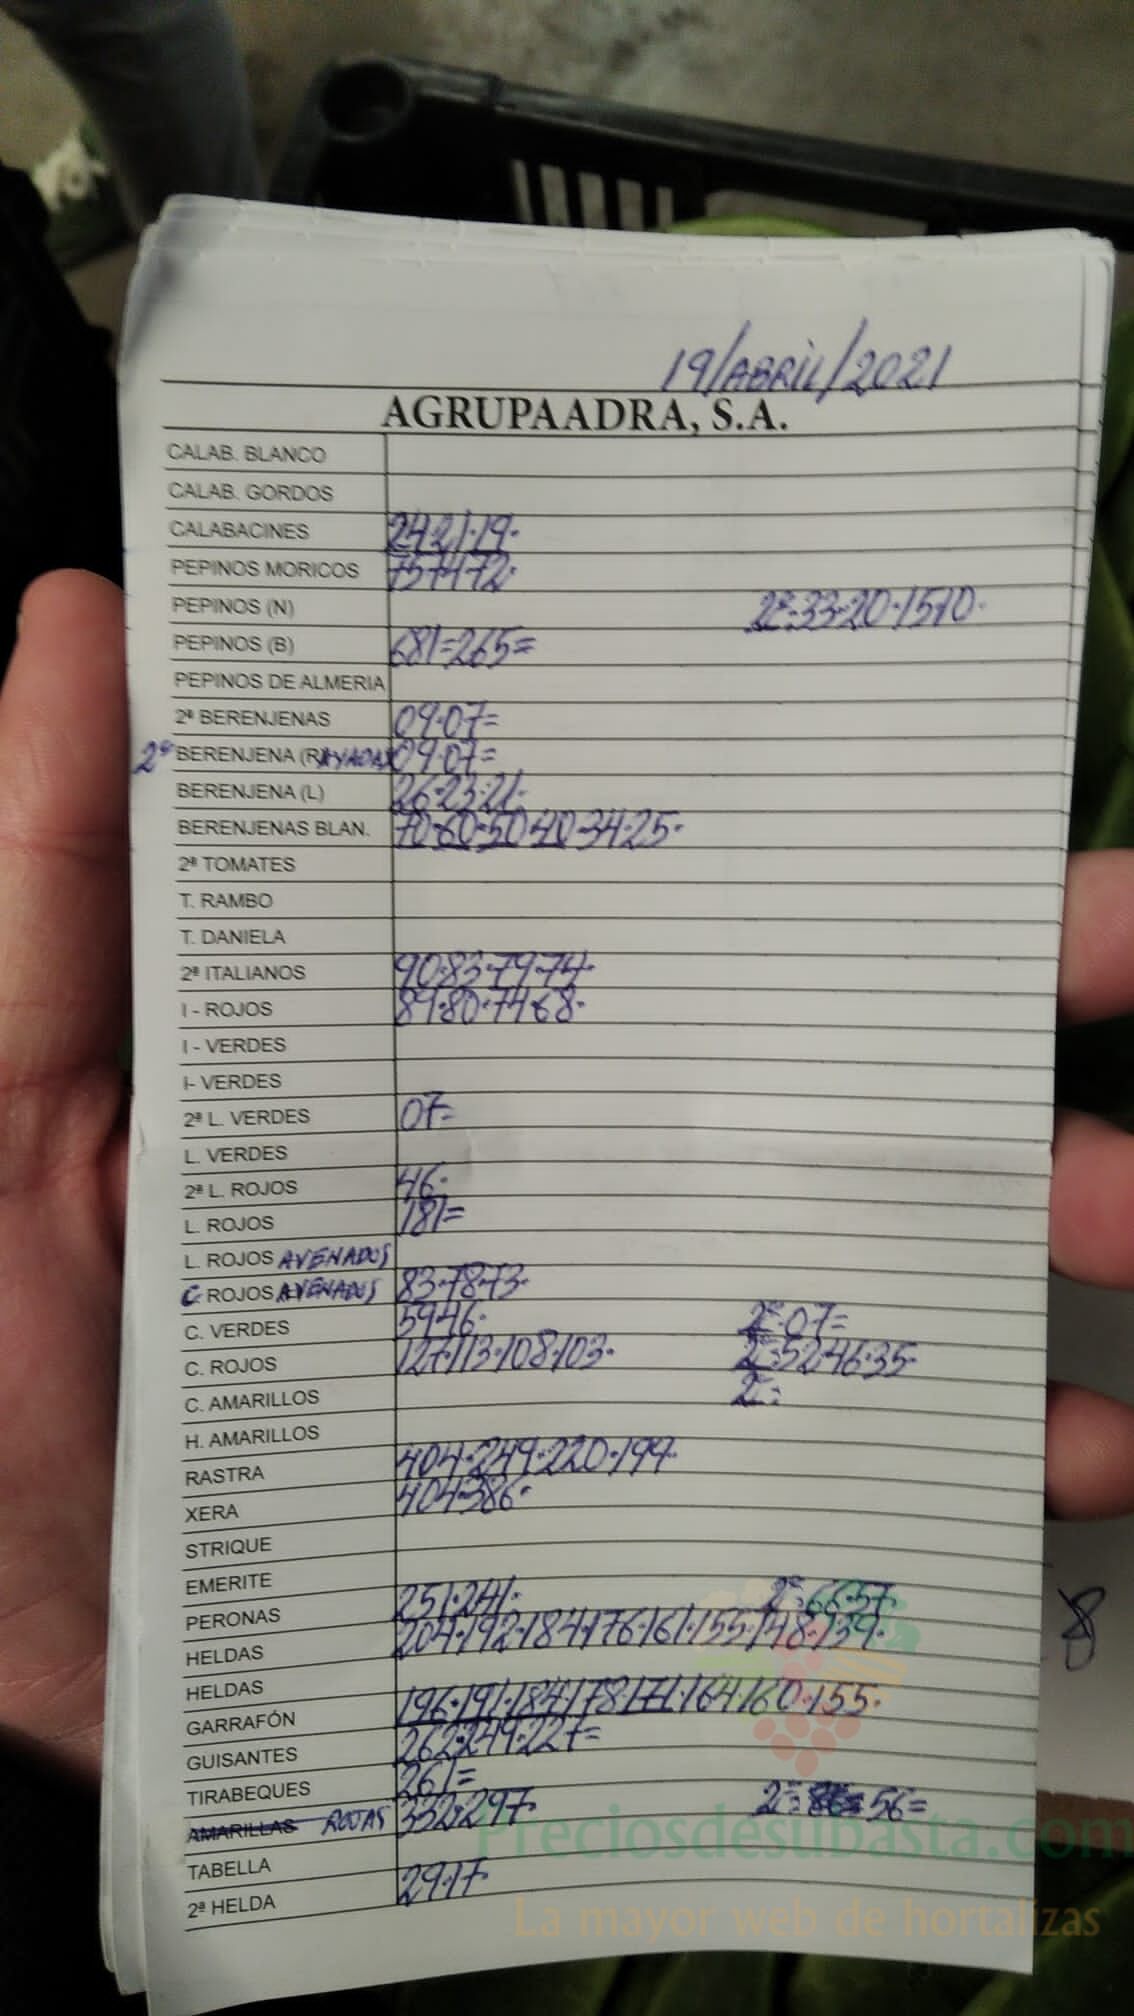 19/ABRIL/2021
AGRUPAADRA, S.A.
CALAB. BLANCO
CALAB. GORDOS
CALABACINES 24·21·19·
PEPINOS MORICOS 75·74·72·
PEPINOS (N) 2ª:33·20·15·10·
PEPINOS (B) 681=265=
PEPINOS DE ALMERIA
2ª BERENJENAS 09·07=
2ª BERENJENA (RAYADA) 09·07=
BERENJENA (L) 26·23·21·
BERENJENAS BLAN. 70·60·50·40·34·25·
2ª TOMATES
T. RAMBO
T. DANIELA
2ª ITALIANOS 90·83·79·74·
I - ROJOS 89·80·74·68·
I - VERDES
I- VERDES
2ª L. VERDES 07=
L. VERDES
2ª L. ROJOS 46·
L. ROJOS 181=
L. ROJOS AVENADOS
C. ROJOS AVENADOS 83·78·73·
C. VERDES 59·46· 2ª·07=
C. ROJOS 127·113·108·103· 2ª:52·46·35·
C. AMARILLOS 2ª:
H. AMARILLOS
RASTRA 404·249·220·199·
XERA 404·386·
STRIQUE
EMERITE
PERONAS 251·241· 2ª:66·57·
HELDAS 204·192·184·176·161·155·148·139·
HELDAS
GARRAFÓN 196·191·184·178·171·164·160·155·
GUISANTES 262·249·227=
TIRABEQUES 261=
AMARILLAS ROJAS 332·297· 2ª: 56=
TABELLA
2ª HELDA 29·17·
8
Preciosdesubasta.com
La mayor web de hortalizas